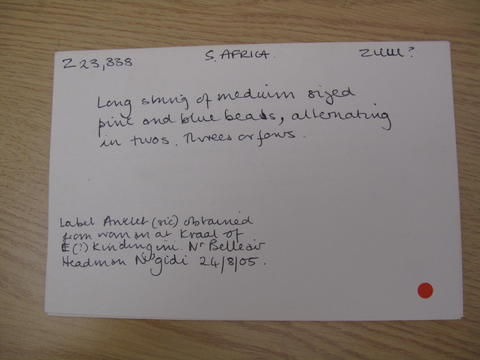 Z 23,838 S. AFRICA. ZULU?
Long string of medium sized
pink and blue beads, alternating
in twos, threes or fours.
Label Anklet (sic) obtained
from woman at Kraal of
E(?) Kindingini Nr Belleair
Headman N'gidi 24/8/05.